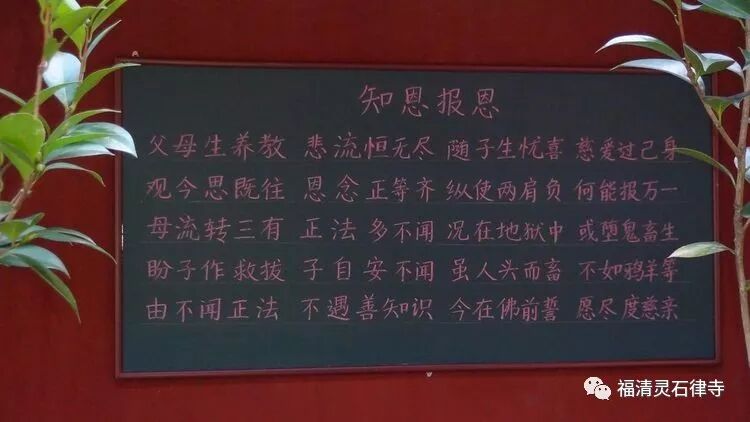 知恩报恩
父母生养教 悲流恒无尽 随子生忧喜 慈爱过己身
观今思既往 恩念正等齐 纵使两肩负 何能报万一
母流转三有 正法多不闻 况在地狱中 或堕鬼畜生
盼子作救拔 子自安不闻 虽人头而畜 不如鸦羊等
由不闻正法 不遇善知识 今在佛前誓 愿尽度慈亲
福清灵石律寺